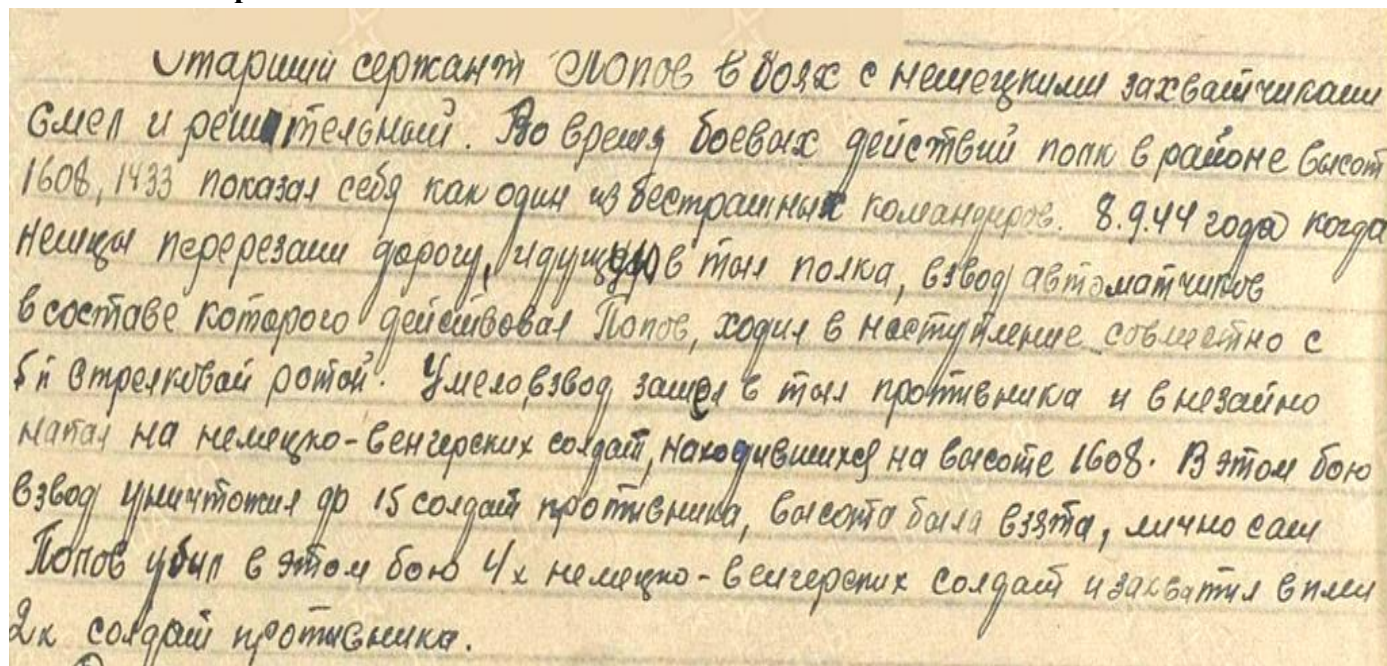 Старший сержант Попов в боях с немецкими захватчиками
смел и решительный. Во время боевых действий полк в районе высот
1608, 1433 показал себя как один из бестрашных командиров. 8.9.44 года когда
немцы перерезали дорогу, идущую в тыл полка, взвод автоматчиков
в составе которого действовал Попов, ходил в наступление совместно с
5й стрелковой ротой. Умело, взвод зашел в тыл противника и внезайно
напал на немецко-венгерских солдат, находившихся на высоте 1608. В этом бою
взвод уничтожил до 15 солдат противника, высота была взята, лично сам
Попов убил в этом бою 4х немецко-венгерских солдат и захватил в плен
2х солдат противника.